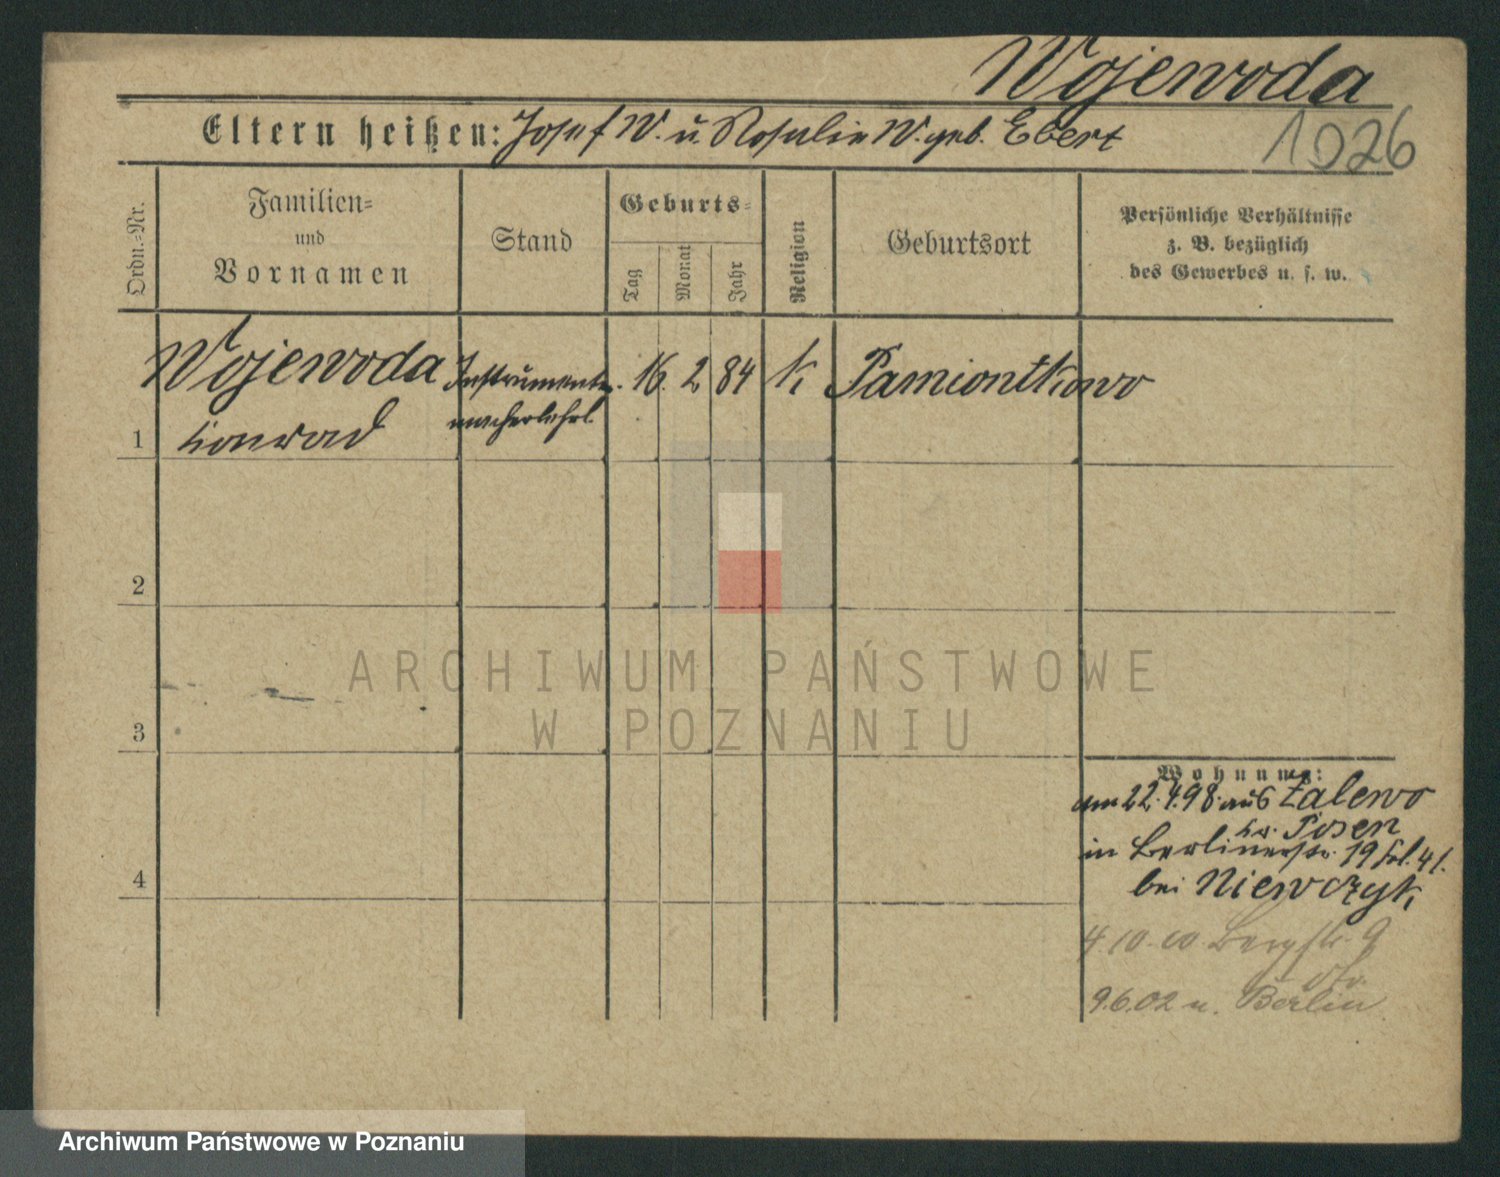 Wojewoda
Eltern heißen: Josef W. u. Rosalie W. geb. Ebert
1026
Ordn.-Nr.
Familien-
und
Vornamen
Stand
Geburts-
Tag
Monat
Jahr
Religion
Geburtsort
Persönliche Verhältnisse
z. B. bezüglich
des Gewerbes u. s. w.
Wojewoda Instrumenten- 16 2 84 k Pamiontkowo
1 Konrad macherlehrl.
2
3
4
ARCHIWUM PAŃSTWOWE
W POZNANIU
Wohnung:
am 22.4.98. aus Zalewo
Kr. Posen
in Berlinerstr. 19
bei Niewczyk
4.10.00. Bergstr. 9
9.6.02 n. Berlin
Archiwum Państwowe w Poznaniu